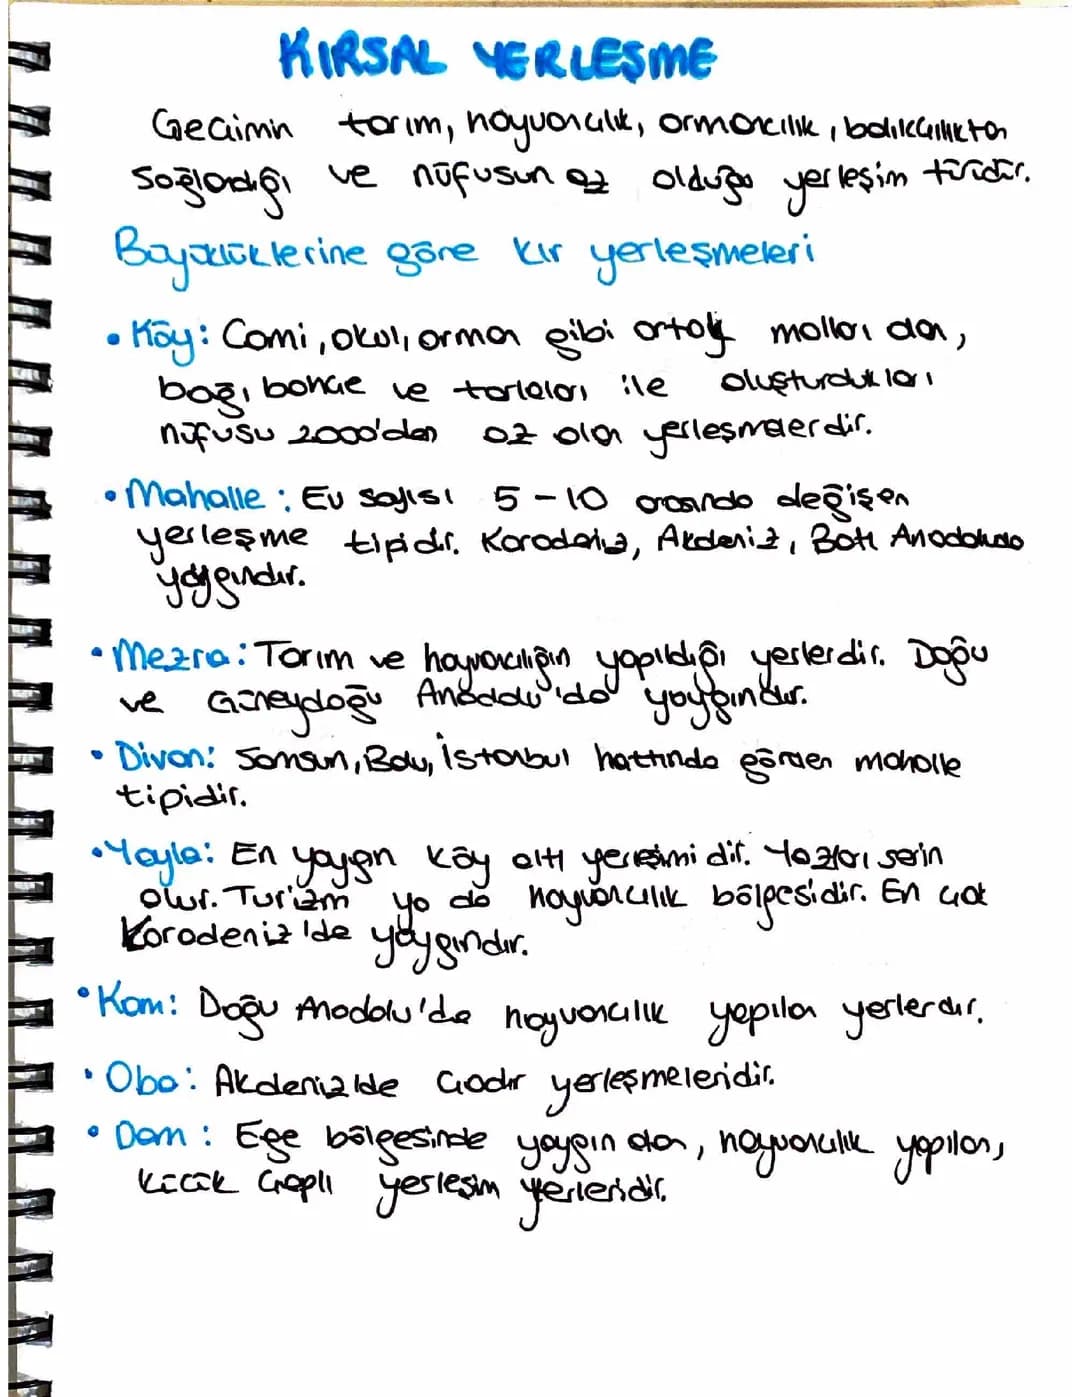 KIRSAL YERLEŞME
Geçimin tarım, hayvancılık, ormancılık, balıkçılıktan
sağlandığı ve nüfusun az olduğu yerleşim türüdür.
Büyüklüklerine göre kır yerleşmeleri
• Köy: Cami, okul, orman gibi ortak malları olan,
bağ, bahçe ve tarlaları ile oluşturdukları
nüfusu 2000'den az olan yerleşmelerdir.
• Mahalle: Ev sayısı 5-10 arasında değişen
yerleşme tipidir. Karadeniz, Akdeniz, Batı Anadoluda
yaygındır.
• Mezra: Tarım ve hayvancılığın yapıldığı yerlerdir. Doğu
ve Güneydoğu Anadolu'da yaygındır.
• Divan: Samsun, Bolu, İstanbul hattında görülen mahalle
tipidir.
• Yayla: En yaygın köy altı yerleşimidir. Yazları serin
olur. Turizm ya da hayvancılık bölgesidir. En çok
Karadeniz'de yaygındır.
• Kom: Doğu Anadolu'da hayvancılık yapılan yerlerdir.
• Oba: Akdeniz'de çadır yerleşmeleridir.
• Dam: Ege bölgesinde yaygın olan, hayvancılık yapılan,
küçük çaplı yerleşim yerleridir.